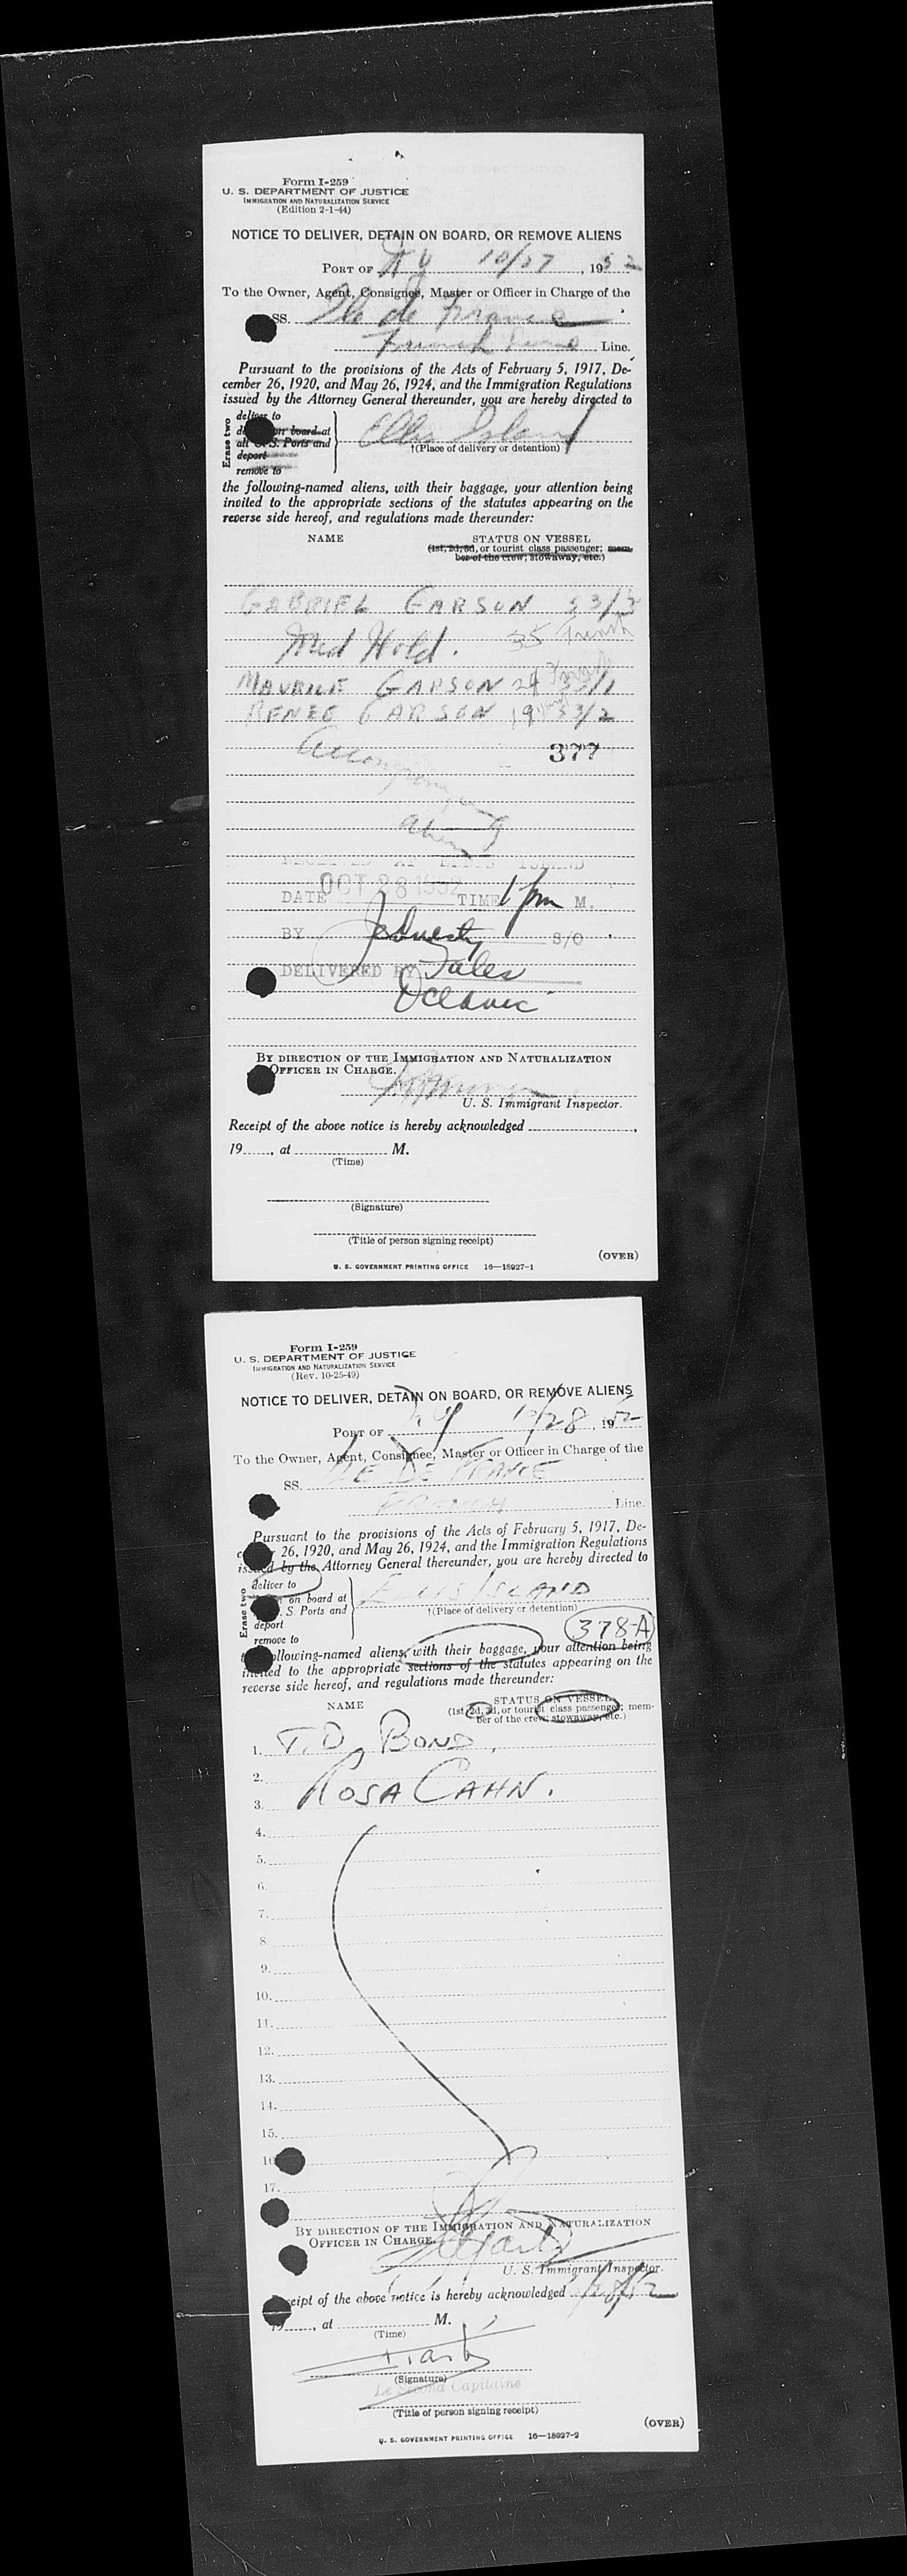 Form I-259
U. S. DEPARTMENT OF JUSTICE
IMMIGRATION AND NATURALIZATION SERVICE
(Edition 2-1-44)
NOTICE TO DELIVER, DETAIN ON BOARD, OR REMOVE ALIENS
PORT OF N Y 10/27, 1952
To the Owner, Agent, Consignee, Master or Officer in Charge of the
SS. Ile de France
French Line Line.
Pursuant to the provisions of the Acts of February 5, 1917, De-
cember 26, 1920, and May 26, 1924, and the Immigration Regulations
issued by the Attorney General thereunder, you are hereby directed to
Erase two
deliver to
on board at
all U. S. Ports and
deport
remove to
Ellis Island
†(Place of delivery or detention)
the following-named aliens, with their baggage, your attention being
invited to the appropriate sections of the statutes appearing on the
reverse side hereof, and regulations made thereunder:
NAME STATUS ON VESSEL
(1st, 2d, 3d, or tourist class passenger; mem-
ber of the crew; stowaway, etc.)
GABRIEL GARSON 33/3
Med Hold. 35 French
MAURICE GARSON 24 33/1
RENEE GARSON 19 33/2
Accompanying 377
alien
RECEIVED AT ELLIS ISLAND
DATE OCT 28 1952 TIME 1 pm M.
BY S/O
DELIVERED BY Fales
Oceanic
BY DIRECTION OF THE IMMIGRATION AND NATURALIZATION
OFFICER IN CHARGE.
U. S. Immigrant Inspector.
Receipt of the above notice is hereby acknowledged
19 , at M.
(Time)
(Signature)
(Title of person signing receipt)
(OVER)
U. S. GOVERNMENT PRINTING OFFICE 16—18927-1
Form I-259
U. S. DEPARTMENT OF JUSTICE
IMMIGRATION AND NATURALIZATION SERVICE
(Rev. 10-25-49)
NOTICE TO DELIVER, DETAIN ON BOARD, OR REMOVE ALIENS
PORT OF N.Y 10/28, 1952
To the Owner, Agent, Consignee, Master or Officer in Charge of the
SS. ILE DE FRANCE
FRENCH Line.
Pursuant to the provisions of the Acts of February 5, 1917, De-
26, 1920, and May 26, 1924, and the Immigration Regulations
issued by the Attorney General thereunder, you are hereby directed to
Erase two
deliver to
on board at
S. Ports and
deport
remove to
ELLIS ISLAND
†(Place of delivery or detention)
378-A
following-named aliens, with their baggage, your attention being
invited to the appropriate sections of the statutes appearing on the
reverse side hereof, and regulations made thereunder:
NAME STATUS ON VESSEL
(1st, 2d, 3d, or tourist class passenger; mem-
ber of the crew; stowaway, etc.)
1. T.D. BOND,
2.
3. ROSA CAHN.
4.
5.
6.
7.
8.
9.
10.
11.
12.
13.
14.
15.
16
17.
BY DIRECTION OF THE IMMIGRATION AND NATURALIZATION
OFFICER IN CHARGE.
U. S. Immigrant Inspector.
Receipt of the above notice is hereby acknowledged
19 , at M.
(Time)
(Signature)
Le Second Capitaine
(Title of person signing receipt)
(OVER)
U. S. GOVERNMENT PRINTING OFFICE 16—18927-2